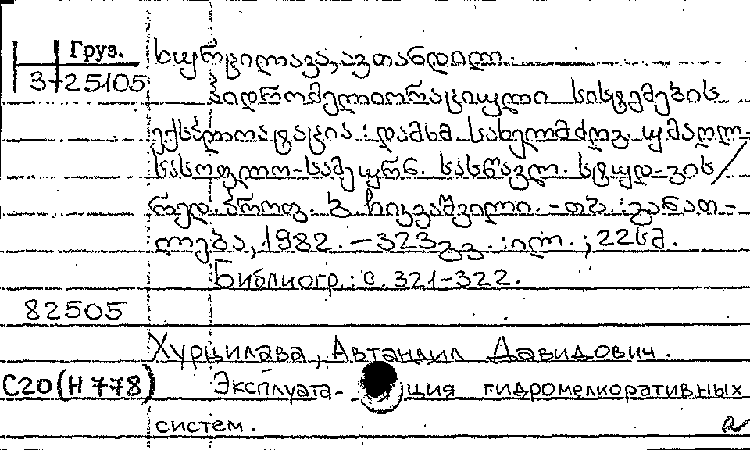 Груз.
3-25105
ხურცილავა, ავთანდილ.
ჰიდრომელიორაციული სისტემების
ექსპლოატაცია : დამხმ. სახელმძღვ. უმაღლ.
სასოფლო-სამეურნ. სასწავლ. სტუდ-ვის /
რედ. პროფ. ვ. ჩიკვაშვილი. - თბ. : განათ-
ლება, 1982. - 323 გვ. : ილ. ; 22 სმ.
Библиогр.: с. 321-322.
82505
Хурцилава, Автандил Давидович.
С20(Н778) Эксплуата- ция гидромелиоративных
систем.